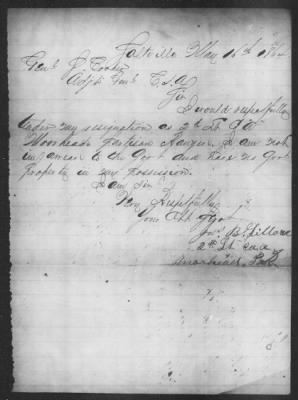 Saltville May 15th 1862
Genl S. Cooper
Adjt Genl C.S.A
Sir
I would respectfully
tender my resignation as 2d Lt Co A
Moorhead's Partisan Rangers I am not
in arrears to the Govt and have no Govt
property in my possession.
I am Sir
Very Respectfully
Your Obt Svt
Jno. B.
2nd Lt Co A